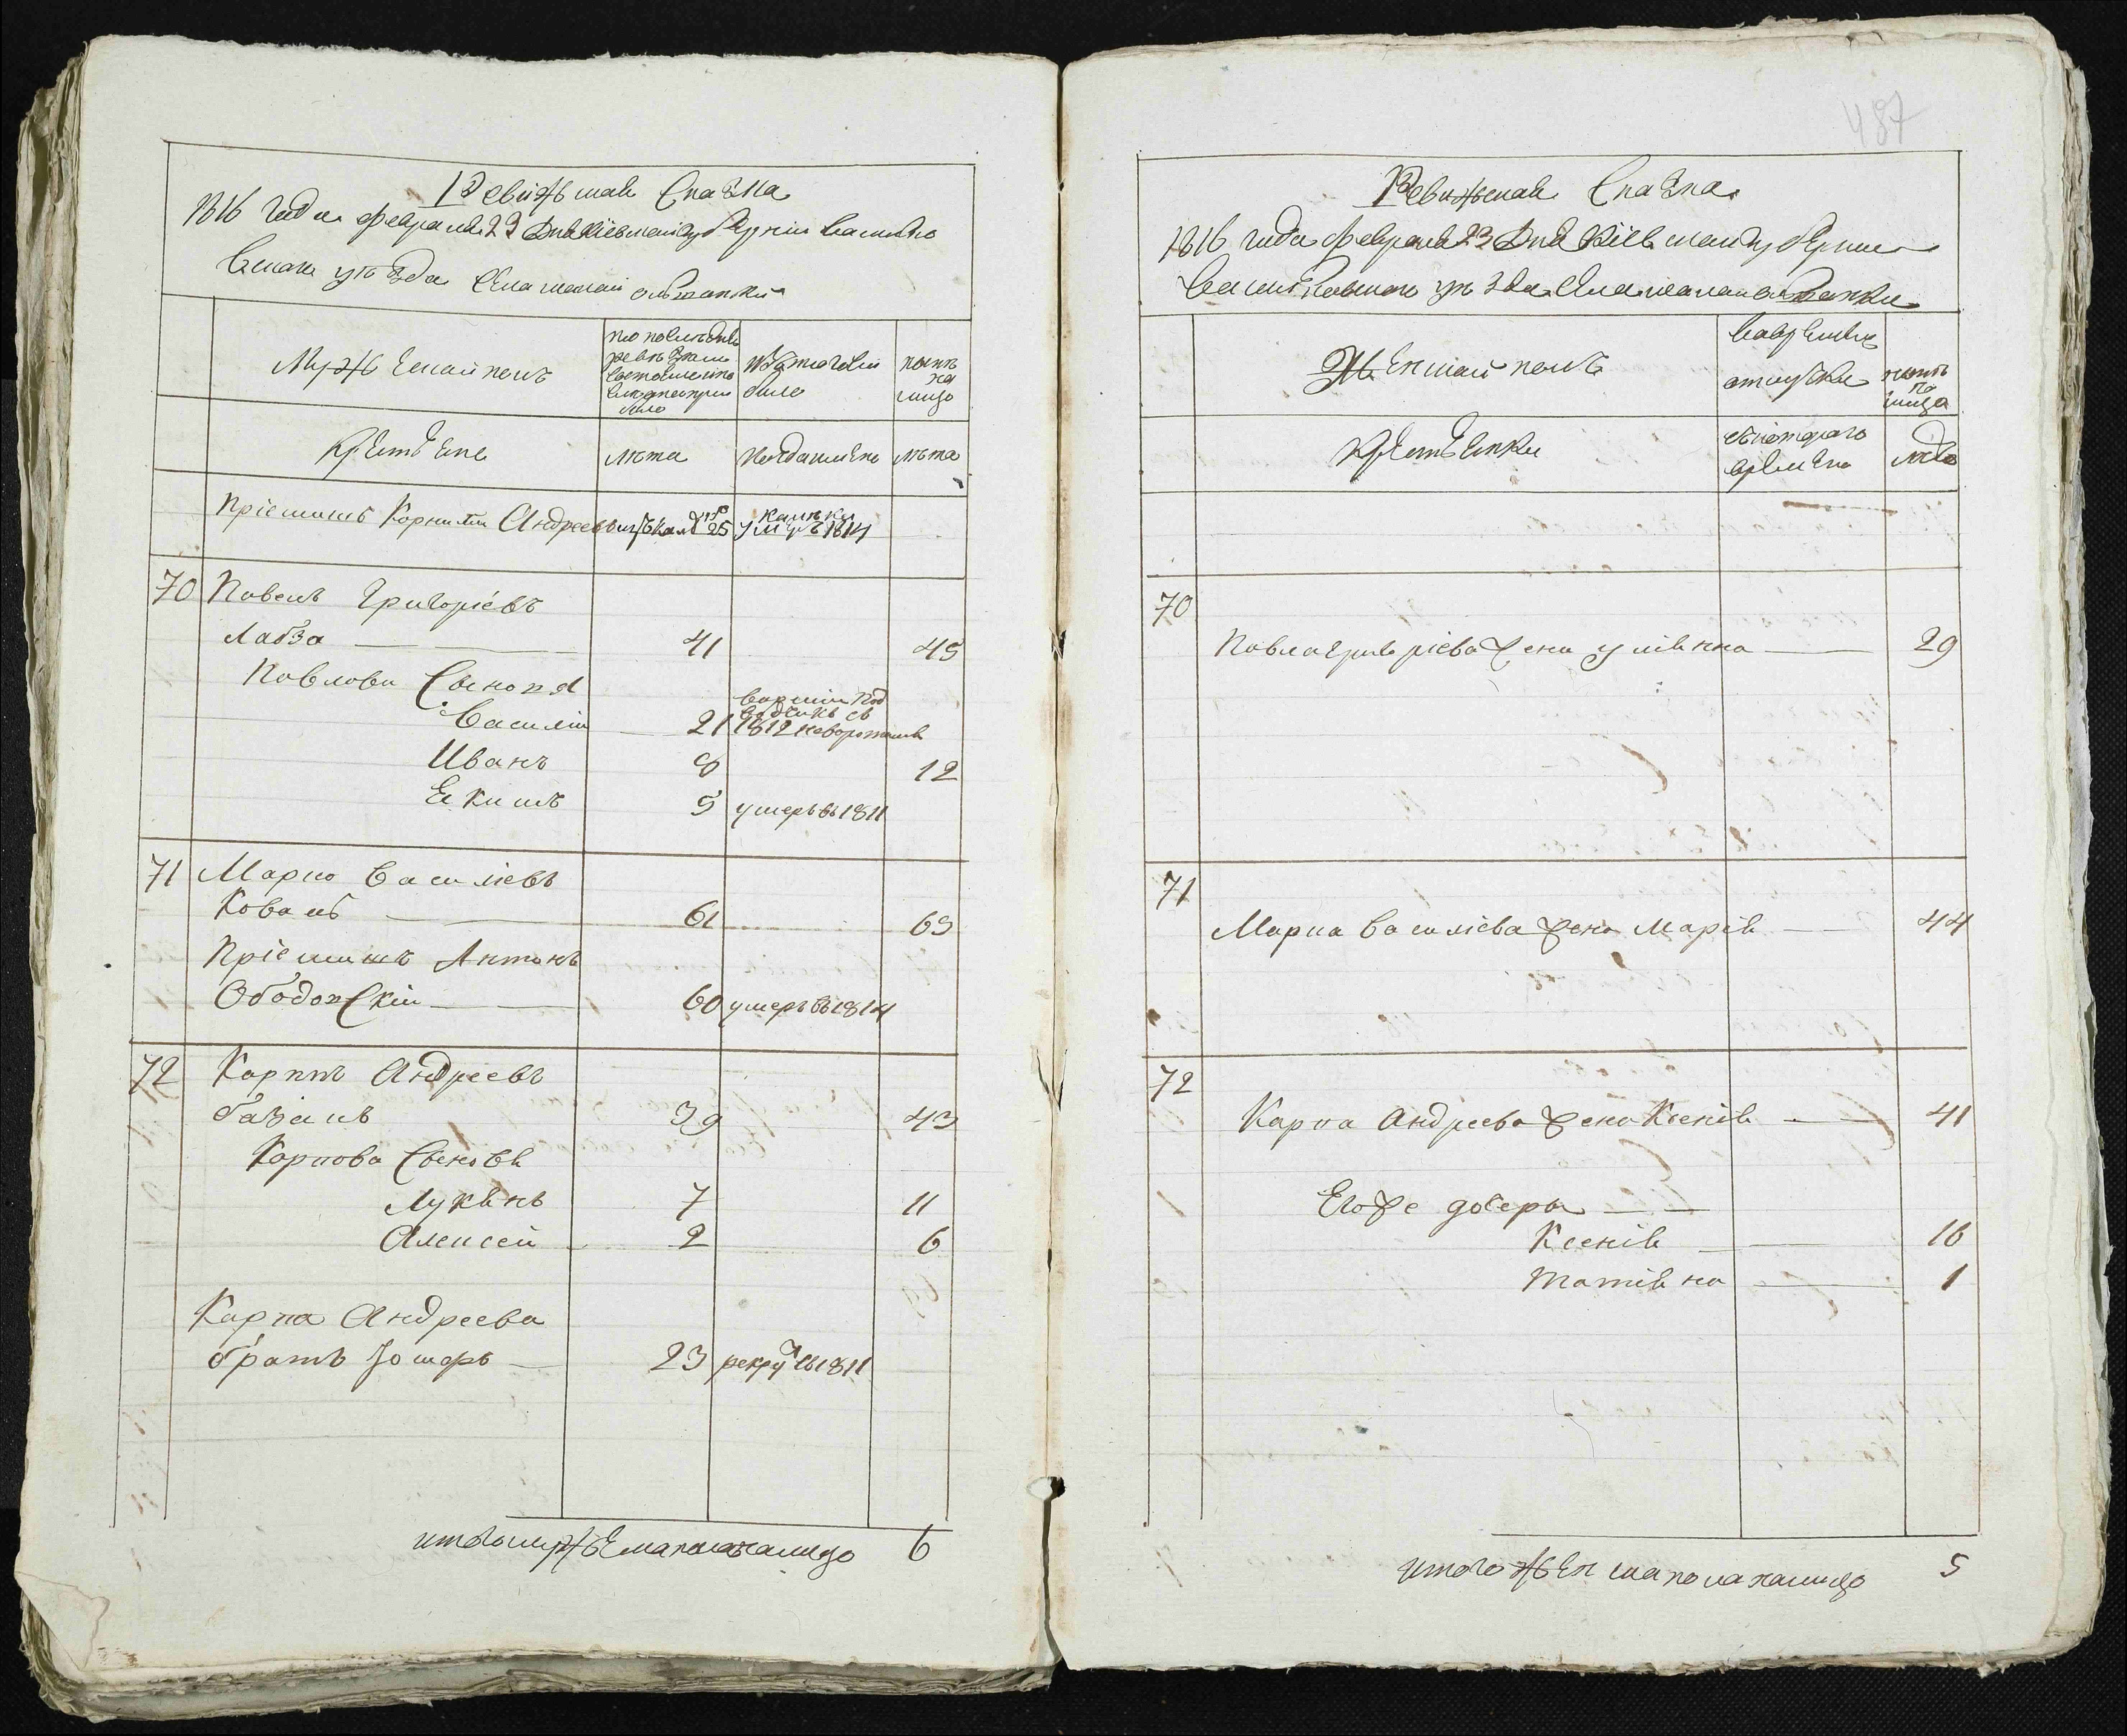 487
Ревижская Сказка
1816 года Февраля 23 Дня Кіевской губерніи василько
вскаго уѣзда Села малой ольшанки
Мужескай полъ
по последней ревизіи состояло и после оной прибыло
изтого числа выбыло
нынѣ на лицо
Крестьяне
лѣта
когда имянно
лѣта
Пріемишъ Корнилій Андреевъ 25 умръ 1814
70 Павелъ Григоріевъ
Лабза 41 45
Павлови Сыновя
Василій 21 1812 невороти
Иванъ 8 12
Екимъ 5 умеръ въ 1811
71 Марко Василіевъ
Коваль 61 65
Пріемишъ Антонъ
Ободонскій 60 умеръ въ 1814
72 Карпъ Андреевъ
базіль 39 43
Карпова Сыновя
Лукянъ 7 11
Алексей 2 6
Карпа Андреева
братъ 23 рекрут въ 1811
итого мужеска пола налицо 6
Ревижская Сказка
1816 года Февраля 23 Дня Кіевской губерніи
васильковскаго уѣзда Села малой ольшанки
Женскай полъ
вовремянной отлучке
нынѣ на лицо
Крестьянки
съкотораго времяни
лѣта
70
Павла Григоріева жена уліянна 29
71
Марка василіева жена Марія 44
72
Карпа Андреева жена Ксенія 41
Егоже дочеры
Ксенія 16
татіяна 1
итого женска пола налицо 5